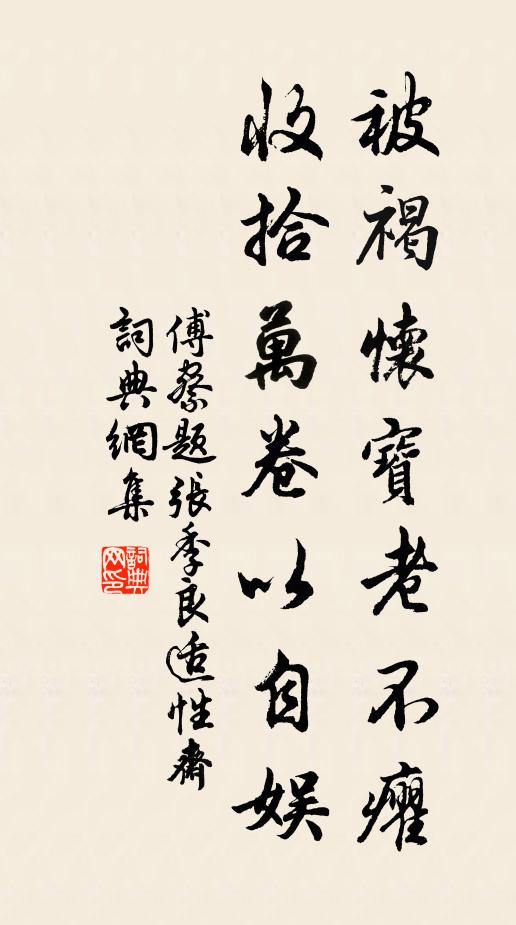 被褐懷寶老不癯
收拾萬卷以自娛
傅察題張季良适性齋
詞典網集
詞典網印